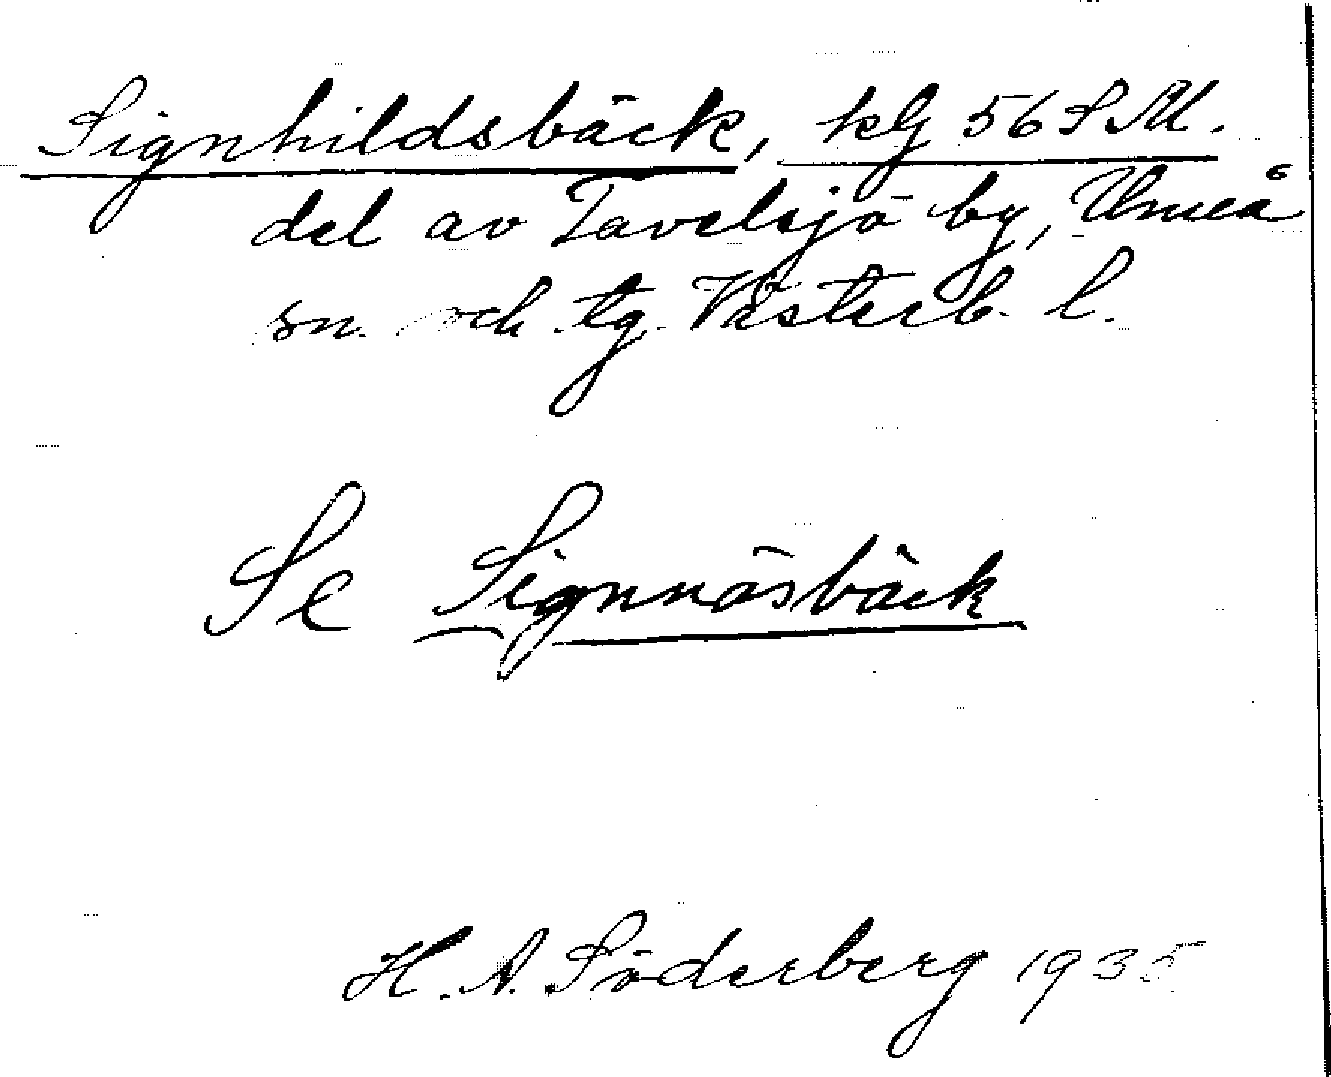 Signhildsbäck, kbl 56 S.M.
del av Tavelsjö by, Umeå
sn. och tg. Västerb. l.
Se Signnäsbäck
H. A. Söderberg 1935